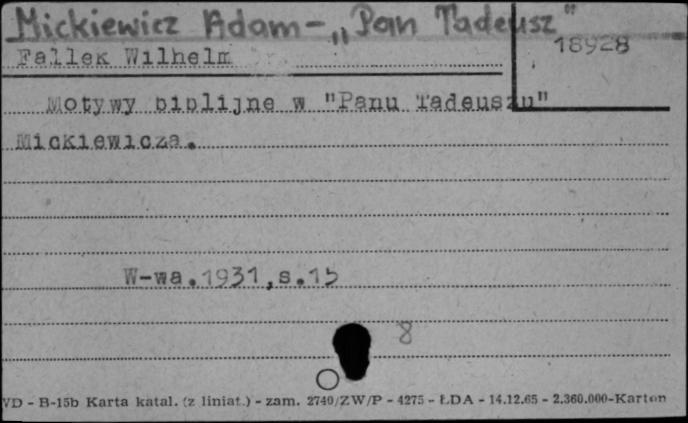 Mickiewicz Adam - „Pan Tadeusz"
18928
Fallek Wilhelm
Motywy biblijne w "Panu Tadeuszu"
Mickiewicza.
W-wa.1931,s.15
8
VD - B-15b Karta katal. (z liniat.) - zam. 2740/ZW/P - 4275 - ŁDA - 14.12.65 - 2.360.000-Karton